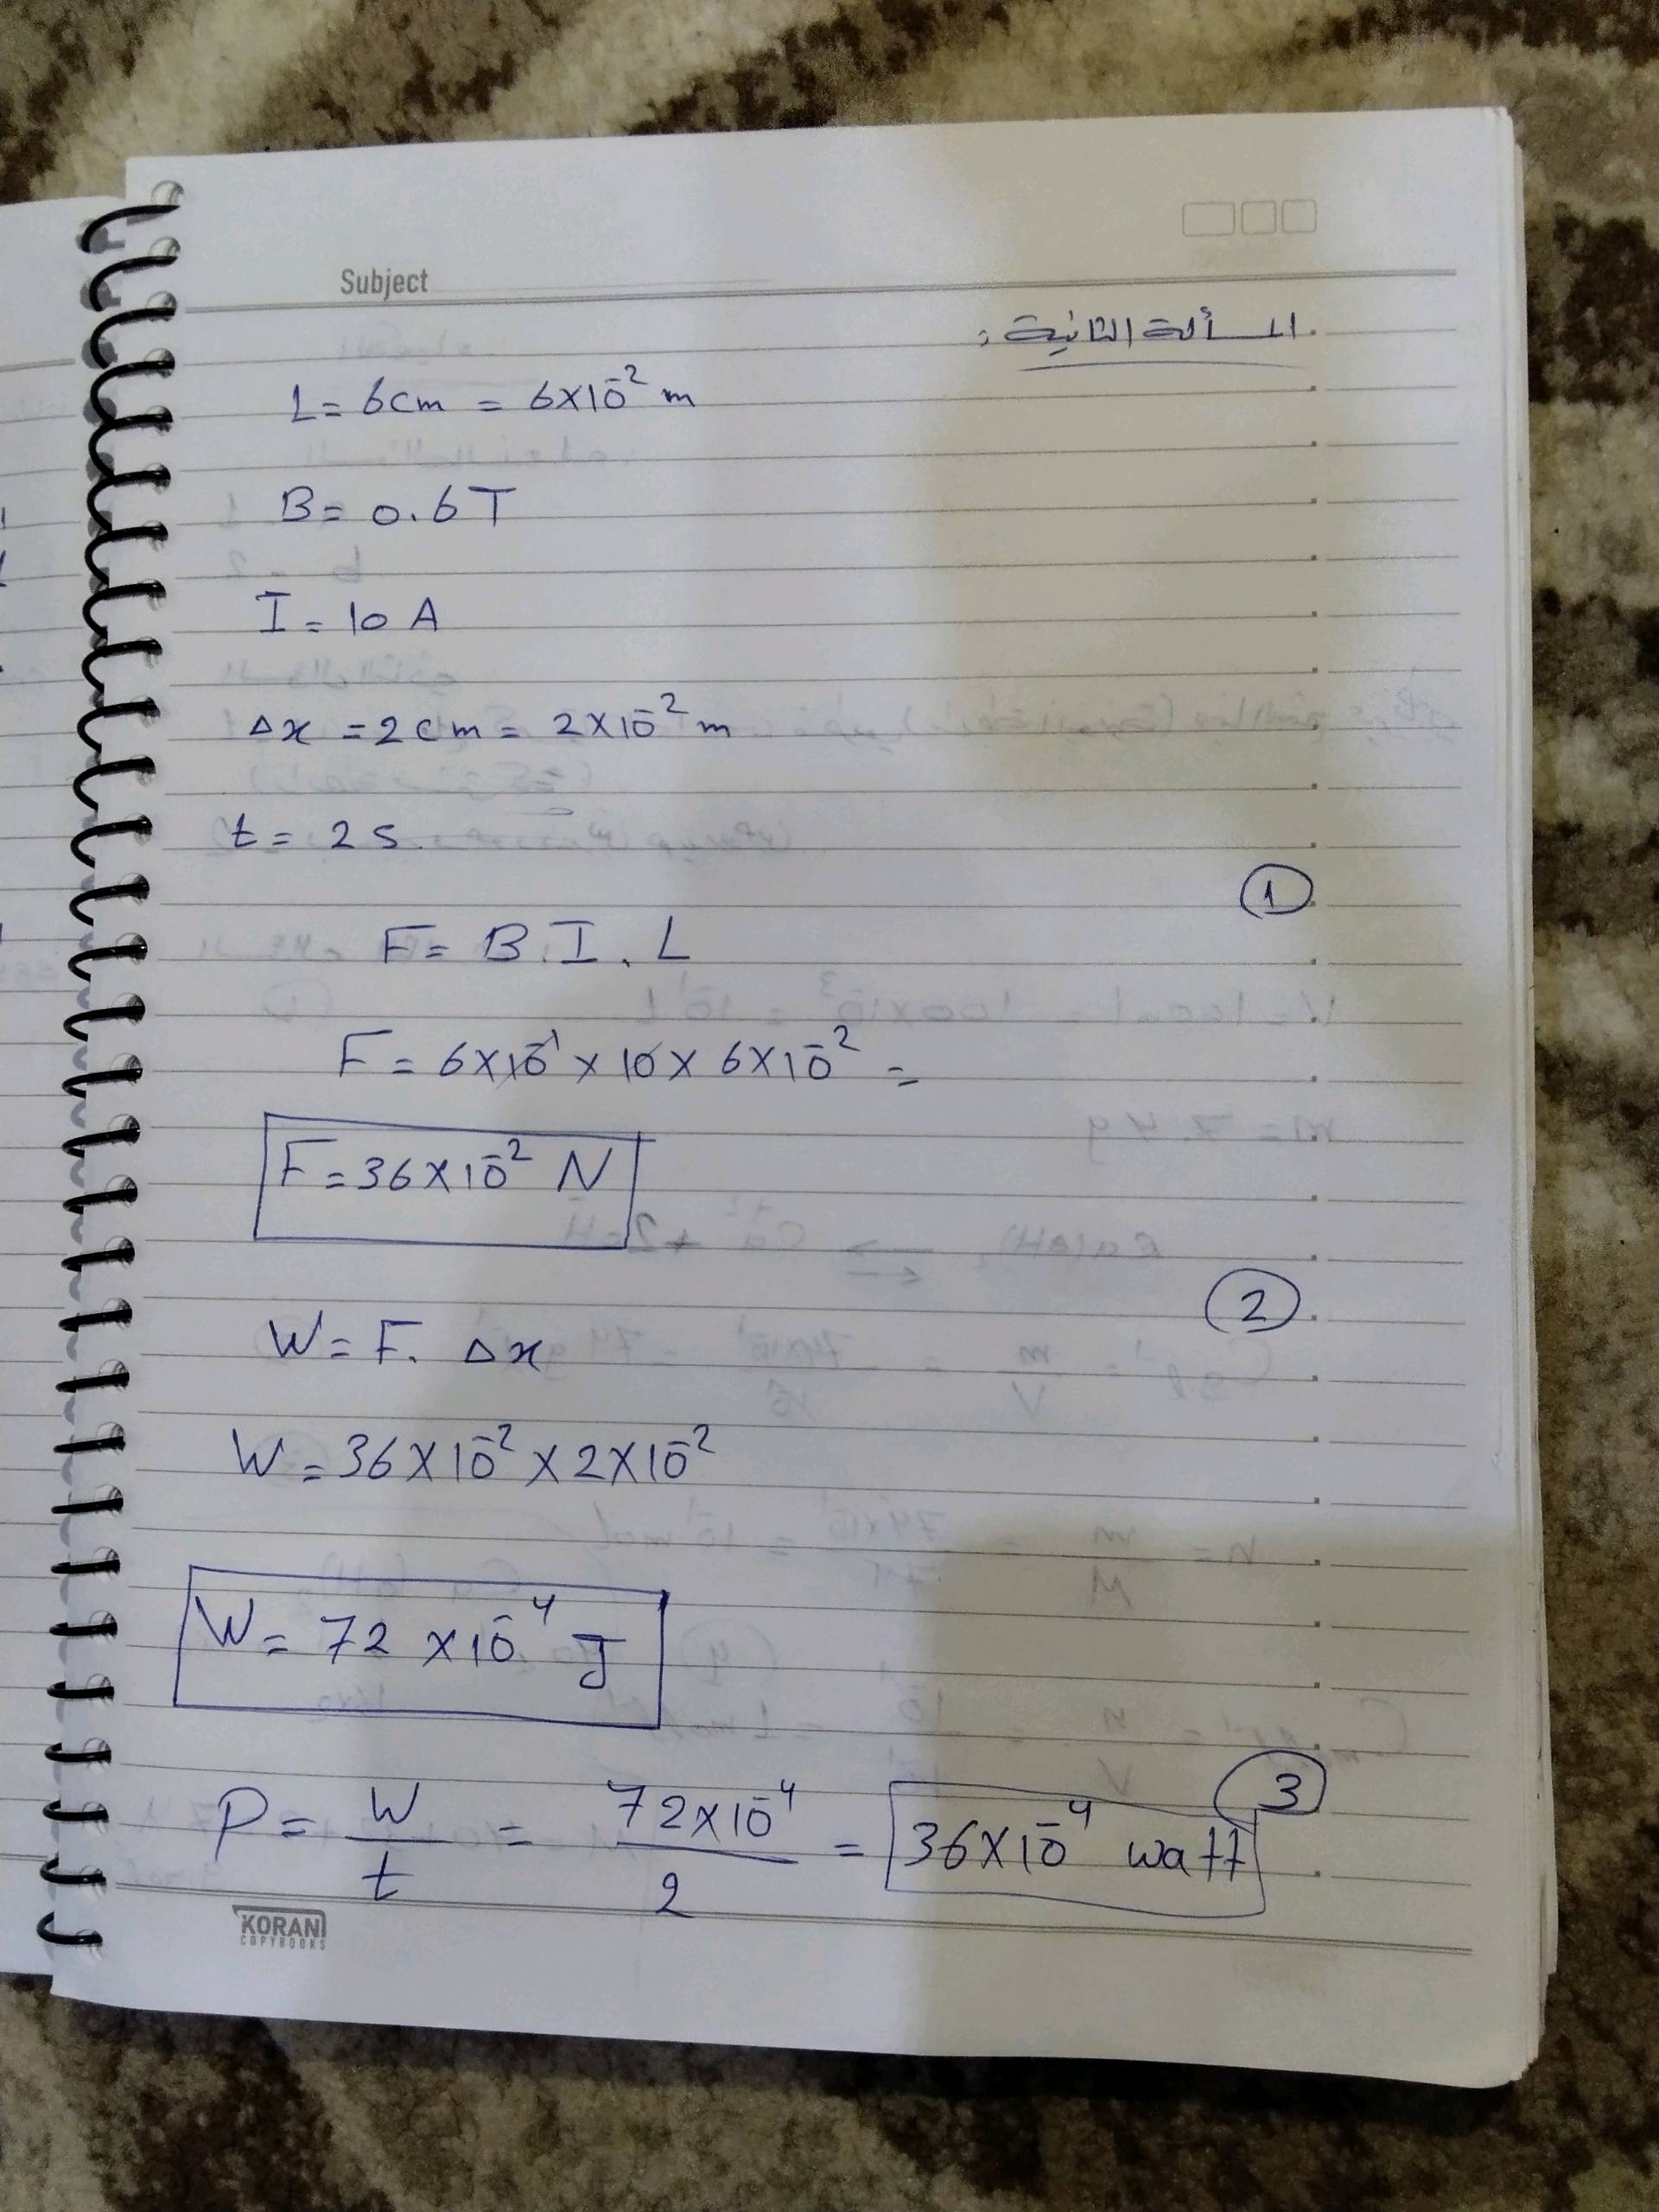 Subject
المسألة الثانية :
L = 6 cm = 6×10⁻² m
B = 0.6 T
I = 10 A
Δx = 2 cm = 2×10⁻² m
t = 2 s.
①
F = B . I . L
F = 6×10⁻¹ × 10 × 6×10⁻² =
F = 36×10⁻² N
②
W = F . Δx
W = 36×10⁻² × 2×10⁻²
W = 72 ×10⁻⁴ J
③
P = W/t = 72×10⁻⁴/2 = 36×10⁻⁴ watt
KORANI
COPYBOOKS